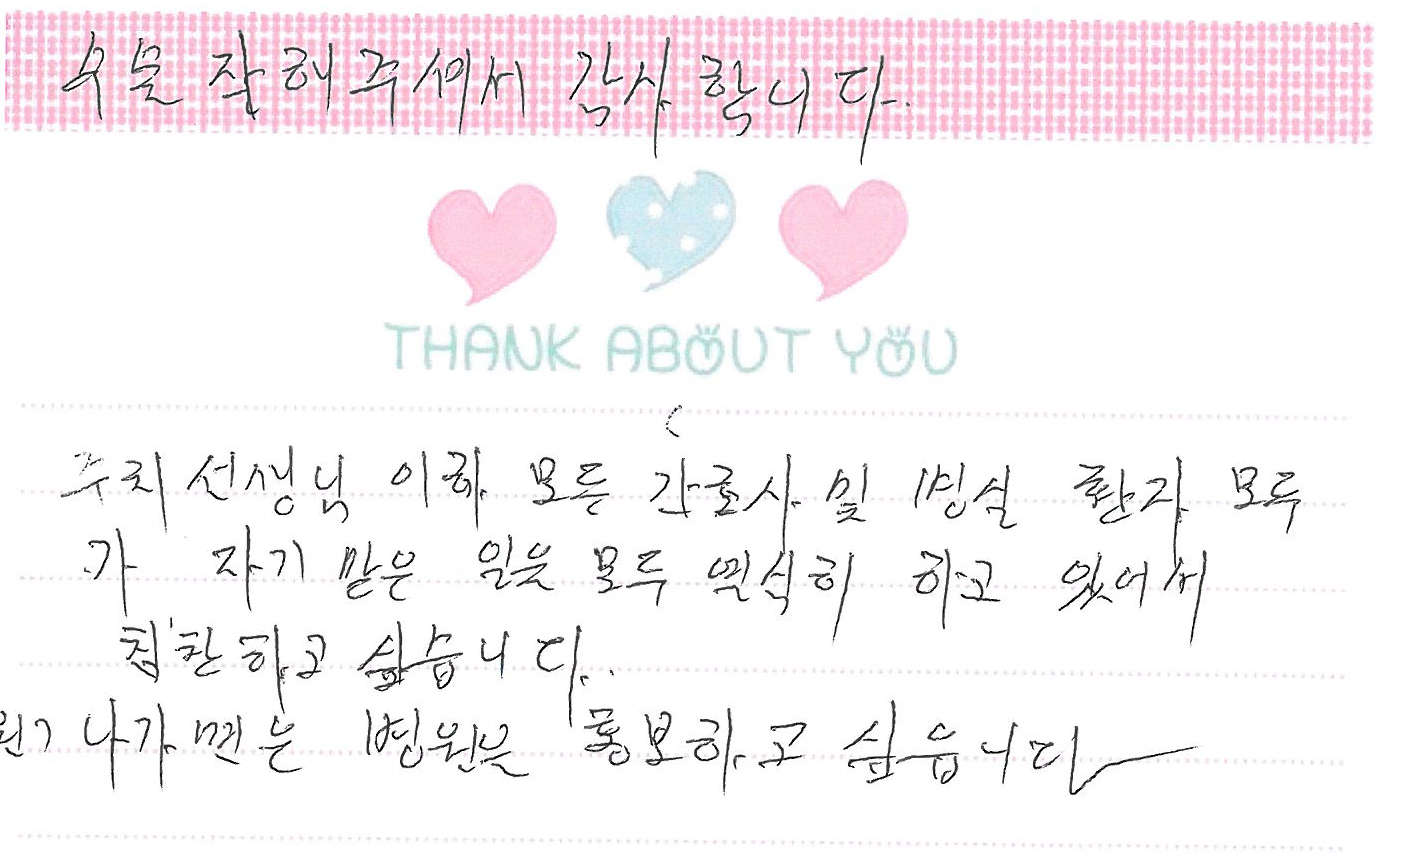 수술 잘해주셔서 감사합니다.
THANK ABOUT YOU
주치 선생님 이하 모든 간호사 및 병실 환자 모두
가 자기 맡은 일을 모두 열심히 하고 있어서
칭찬하고 싶습니다..
나가면은 병원을 홍보하고 싶습니다